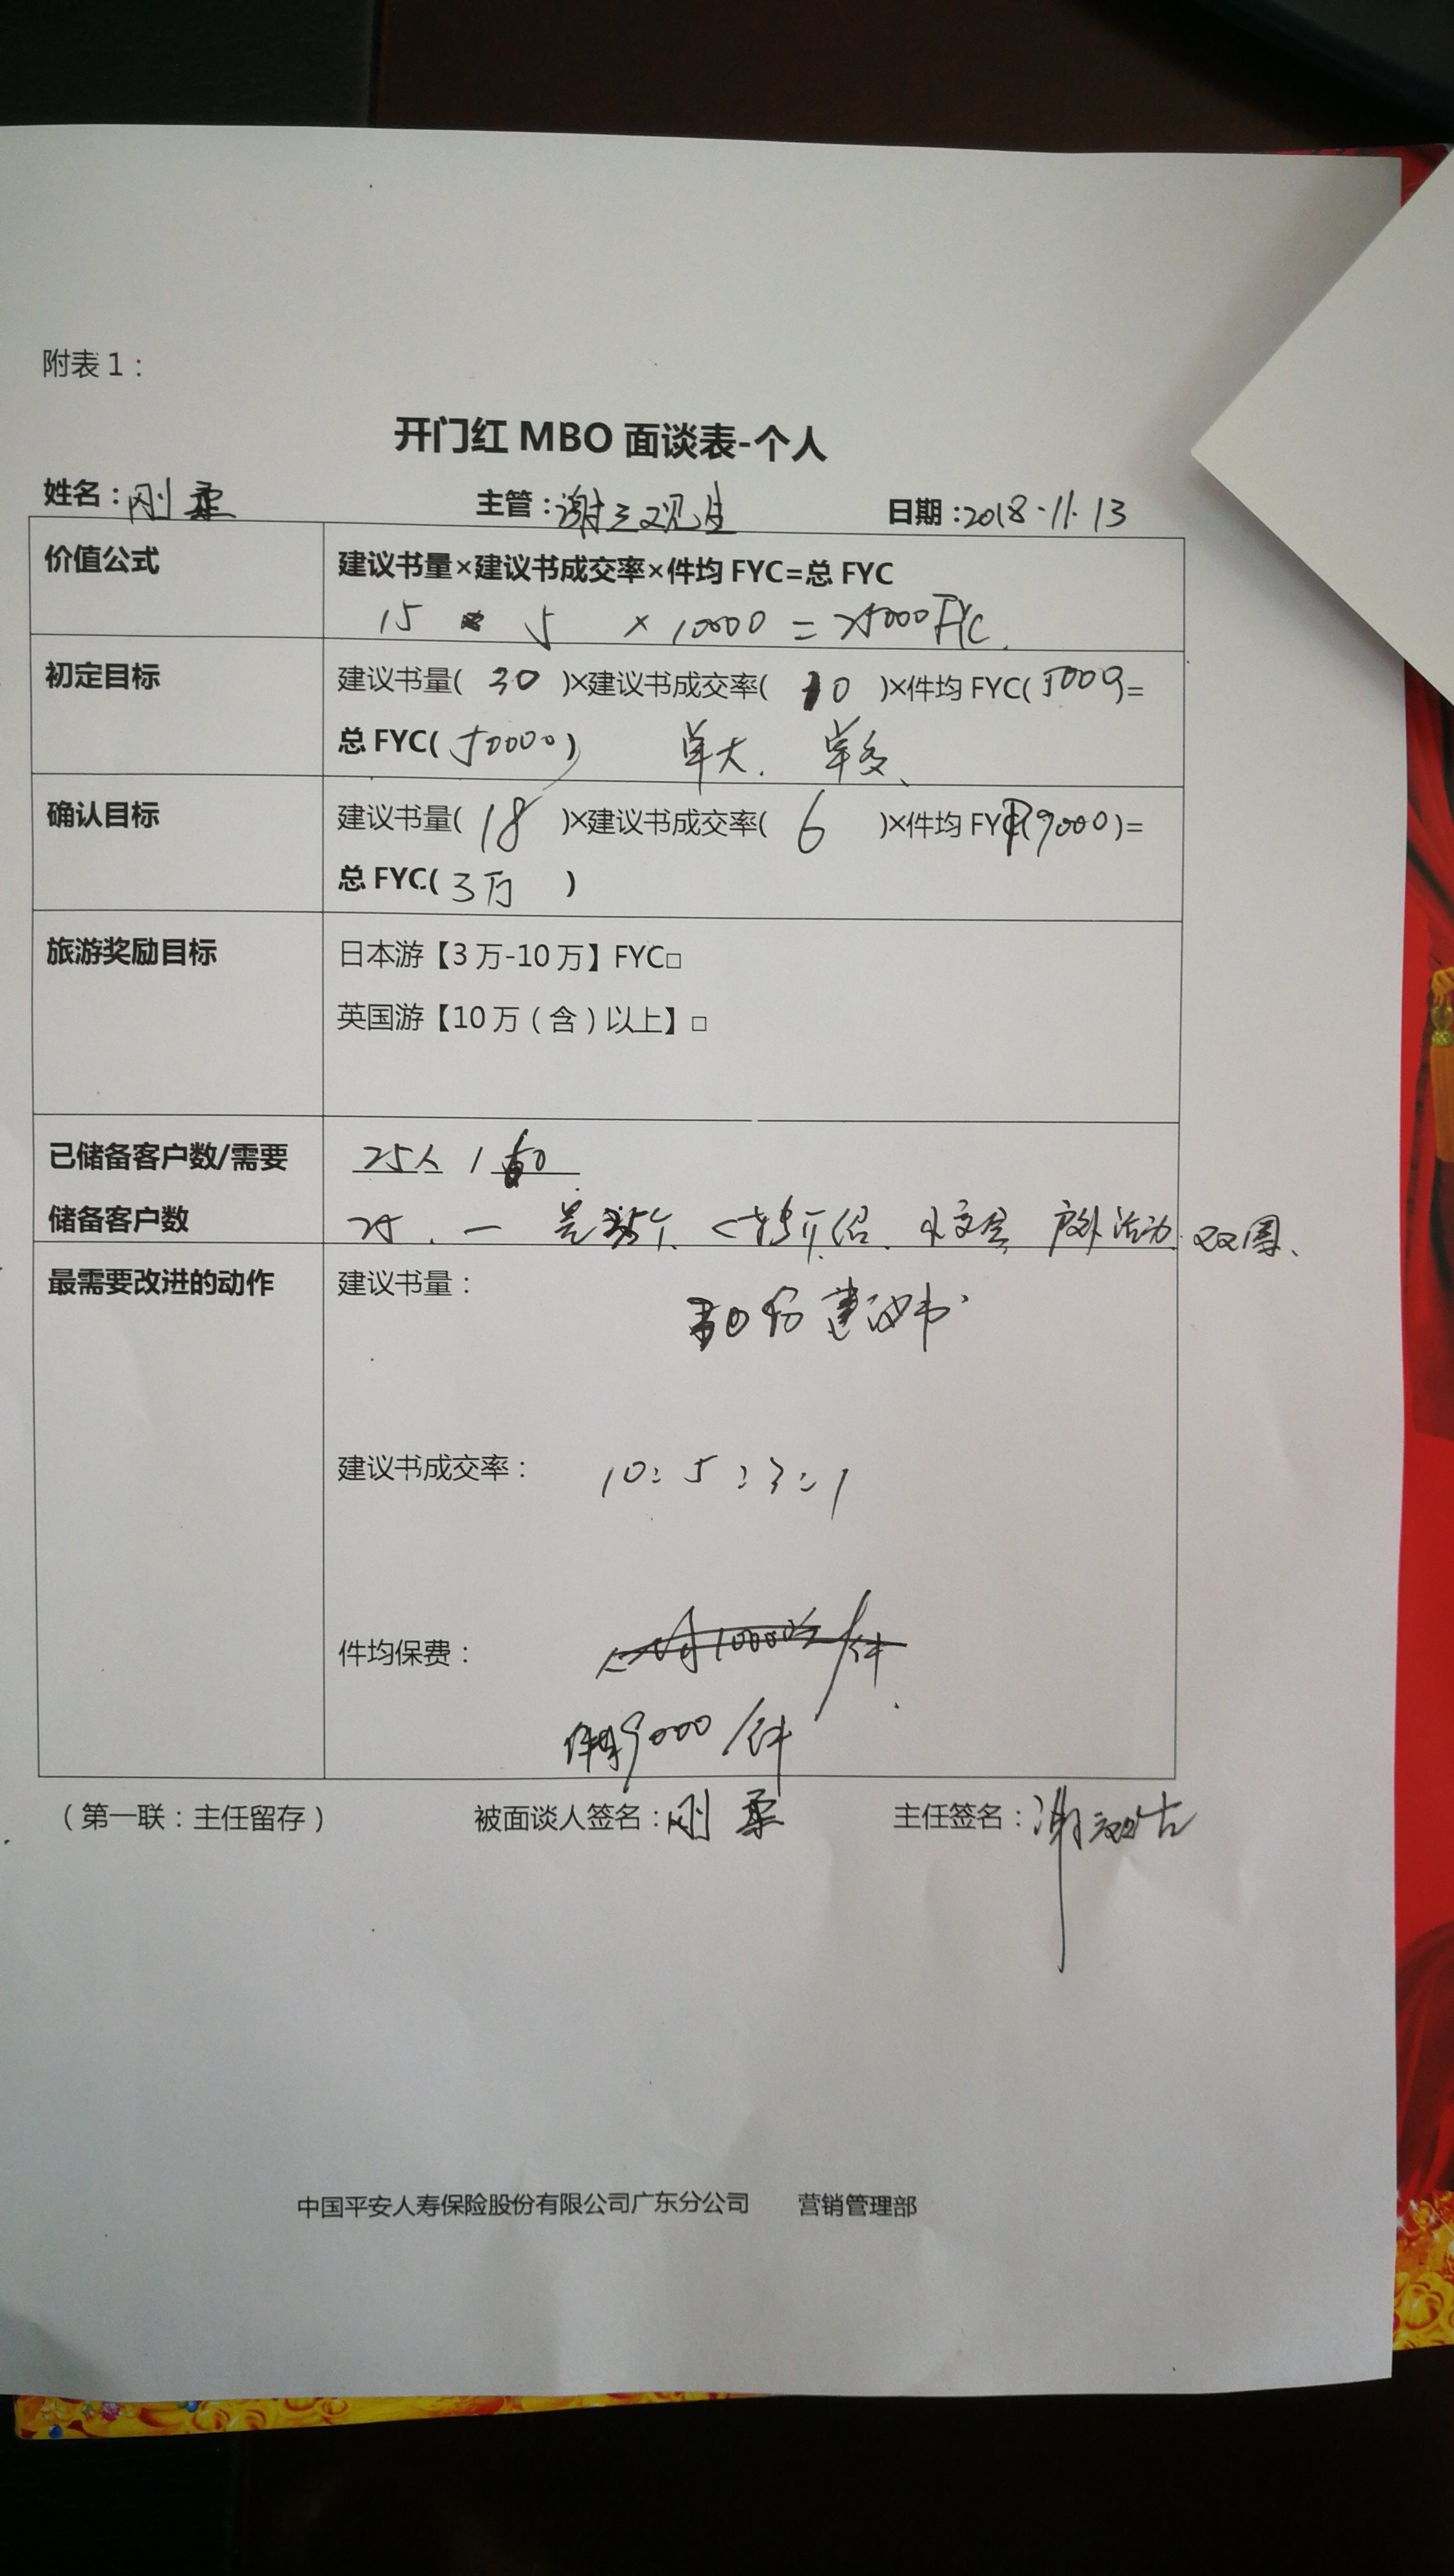 附表1：
开门红MBO面谈表-个人
姓名：刚柔 主管：谢 日期：2018.11.13
价值公式 建议书量×建议书成交率×件均FYC=总FYC
15 5 × 10000 = 25000 FYC.
初定目标 建议书量( 30 )×建议书成交率( 10 )×件均FYC(5000)=
总FYC(50000) 单大. 单多、
确认目标 建议书量( 18 )×建议书成交率( 6 )×件均FYC(9000)=
总FYC(3万 )
旅游奖励目标 日本游【3万-10万】FYC□
英国游【10万（含）以上】□
已储备客户数/需要 25人 / 60
储备客户数 25. 一 转介绍. 户外活动. 双周、
最需要改进的动作 建议书量： 30份建议书
建议书成交率： 10:5:3:1
件均保费： 10000 /件
件均9000/件
（第一联：主任留存） 被面谈人签名：刚柔 主任签名：谢
中国平安人寿保险股份有限公司广东分公司 营销管理部